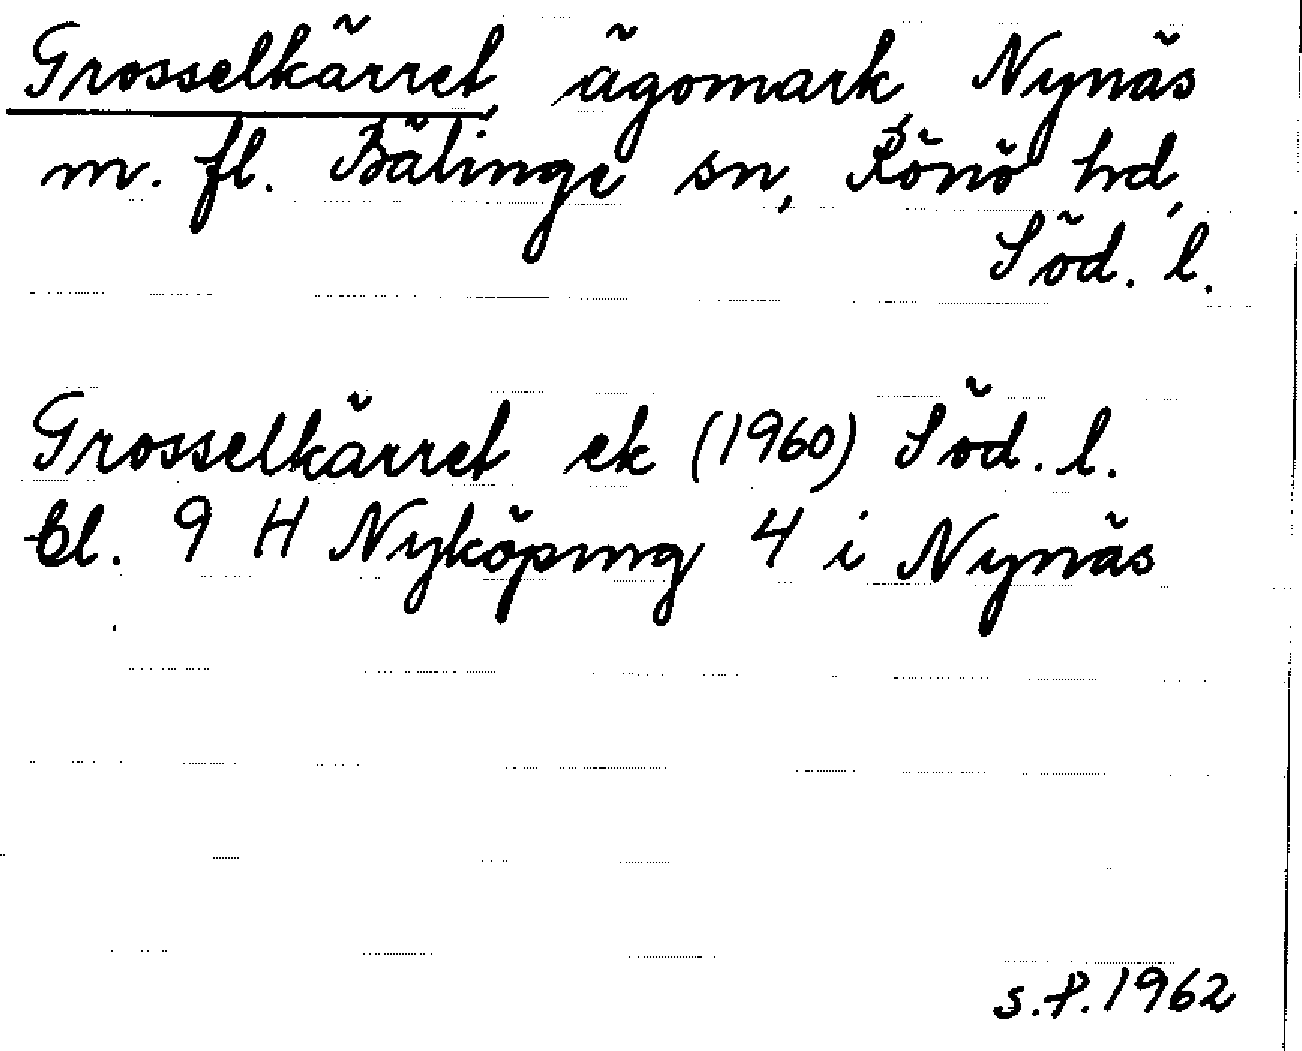 Grosselkärret, ägomark Nynäs
m. fl. Bälinge sn, Rönö hd,
Söd. l.
Grosselkärret ek (1960) Söd. l.
bl. 9 H Nyköping 4 i Nynäs
S.P. 1962